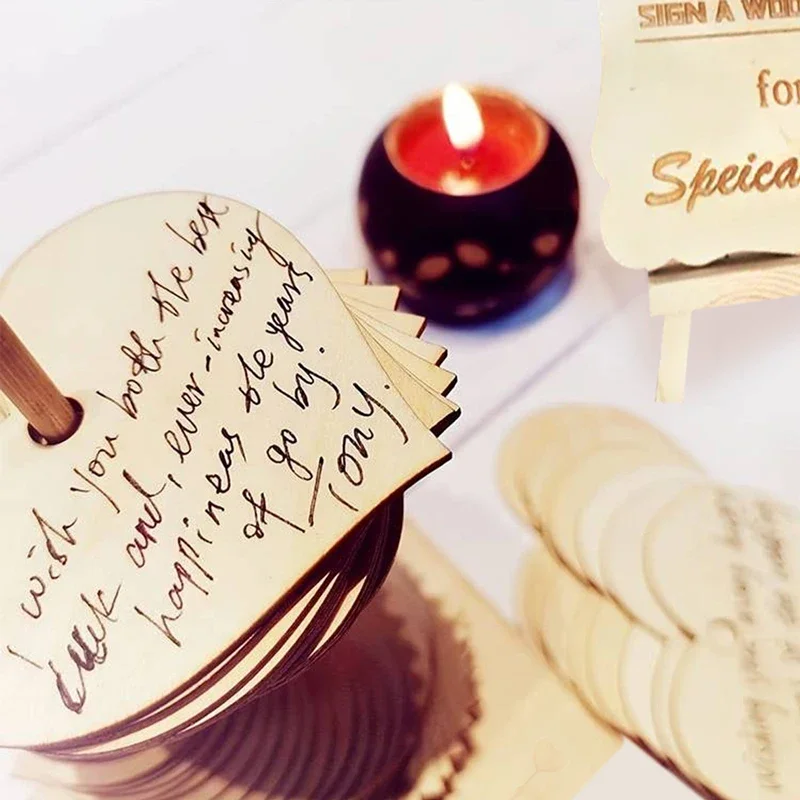 SIGN A WOO
for
Speica
I wish you both the best
luck and, ever-increasing
happiness the years
of go by.
Tony.